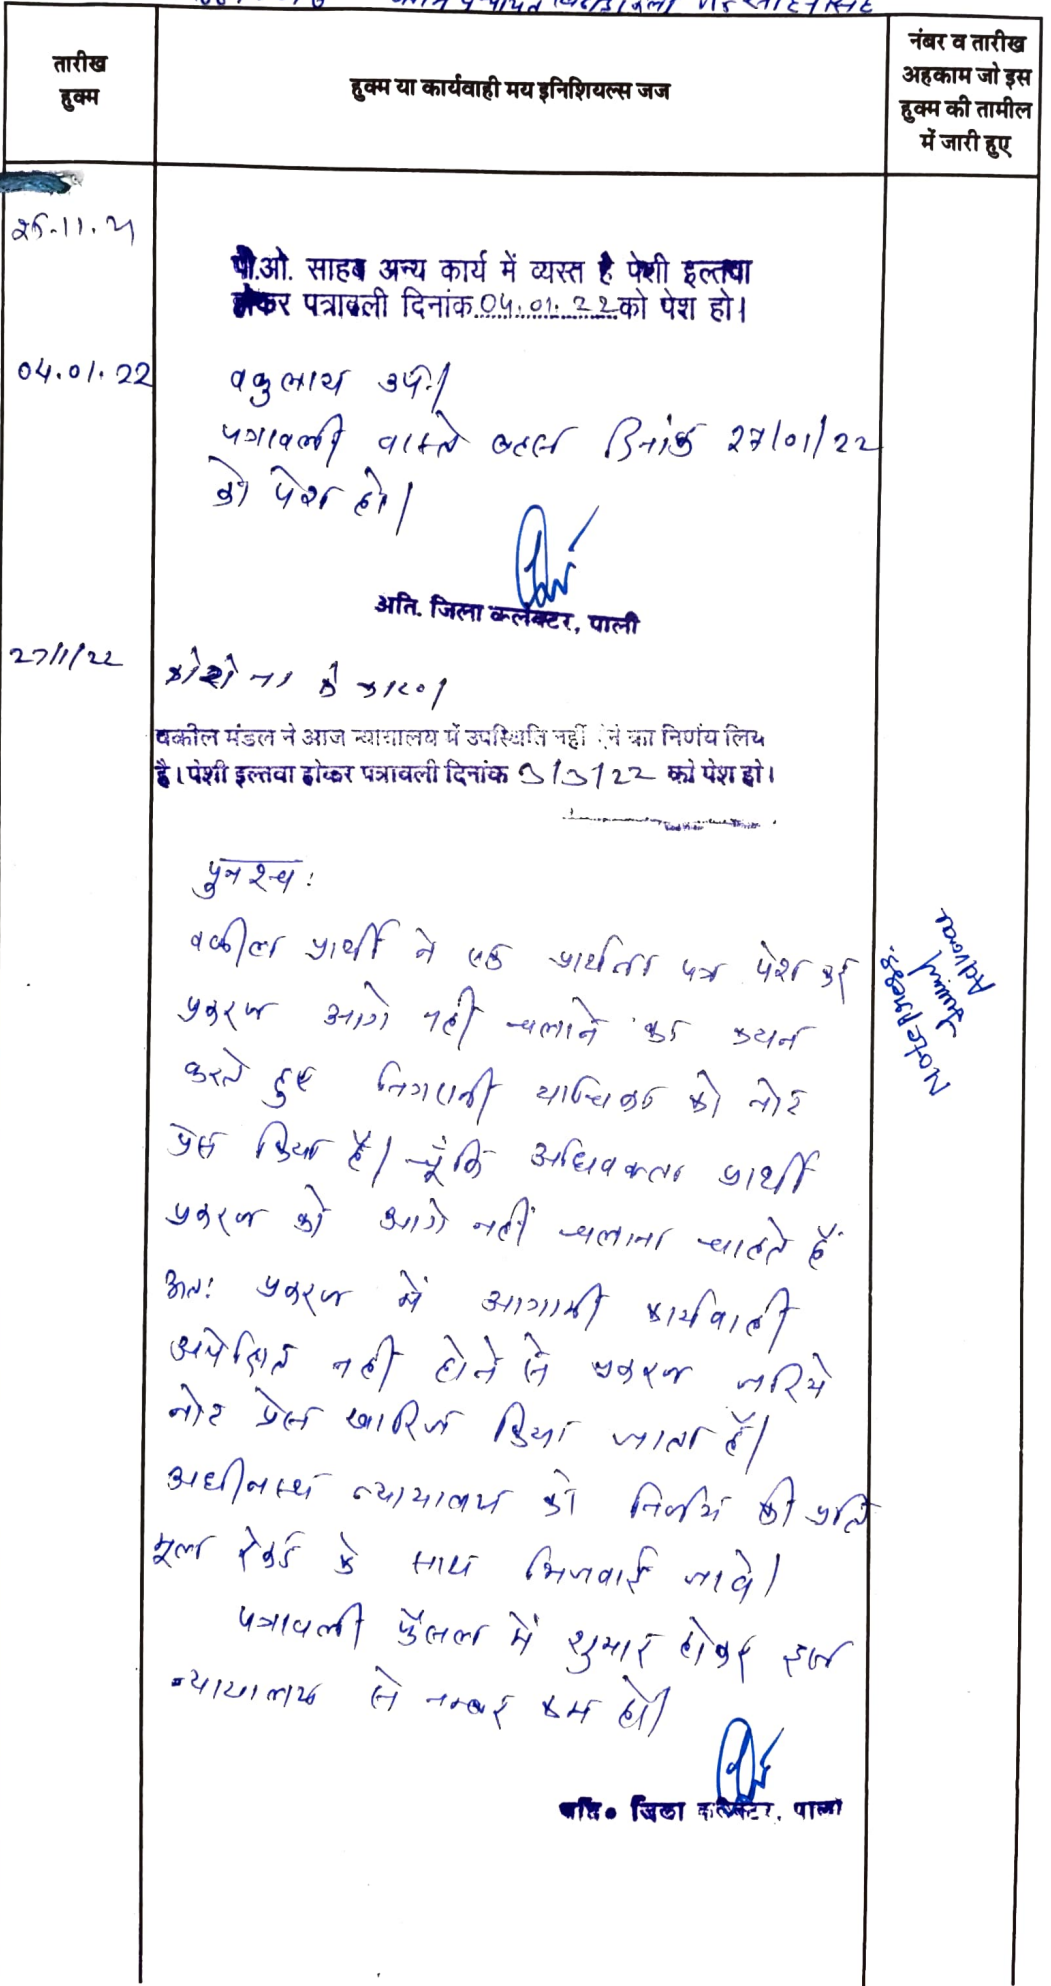 तारीख
हुक्म
हुक्म या कार्यवाही मय इनिशियल्स जज
नंबर व तारीख
अहकाम जो इस
हुक्म की तामील
में जारी हुए
25.11.21
पी.ओ. साहब अन्य कार्य में व्यस्त है पेशी इल्तवा
होकर पत्रावली दिनांक 04.01.22 को पेश हो।
04.01.22
वकुलाय उप.।
पत्रावली वास्ते बहस दिनांक 27/01/22
को पेश हो।
अति. जिला कलेक्टर, पाली
27/1/22
कोरोना के कारण
वकील मंडल ने आज न्यायालय में उपस्थिति नहीं देने का निर्णय लिय
है। पेशी इल्तवा होकर पत्रावली दिनांक 3/3/22 को पेश हो।
पुनश्च:
वकील प्रार्थी ने एक प्रार्थना पत्र पेश कर
प्रकरण आगे नहीं चलाने का कथन
करते हुए निगरानी याचिका को नोट
प्रेस किया है। चूँकि अधिवक्ता प्रार्थी
प्रकरण को आगे नहीं चलाना चाहते हैं
अतः प्रकरण में आगामी कार्यवाही
अपेक्षित नहीं होने से प्रकरण जरिये
नोट प्रेस खारिज किया जाता है।
अधीनस्थ न्यायालय को निर्णय की प्रति
मूल रेकर्ड के साथ भिजवाई जावे।
पत्रावली फैसल में शुमार होकर इस
न्यायालय से नम्बर कम हो।
अति. जिला कलेक्टर, पाली
Notepress.
Advocate